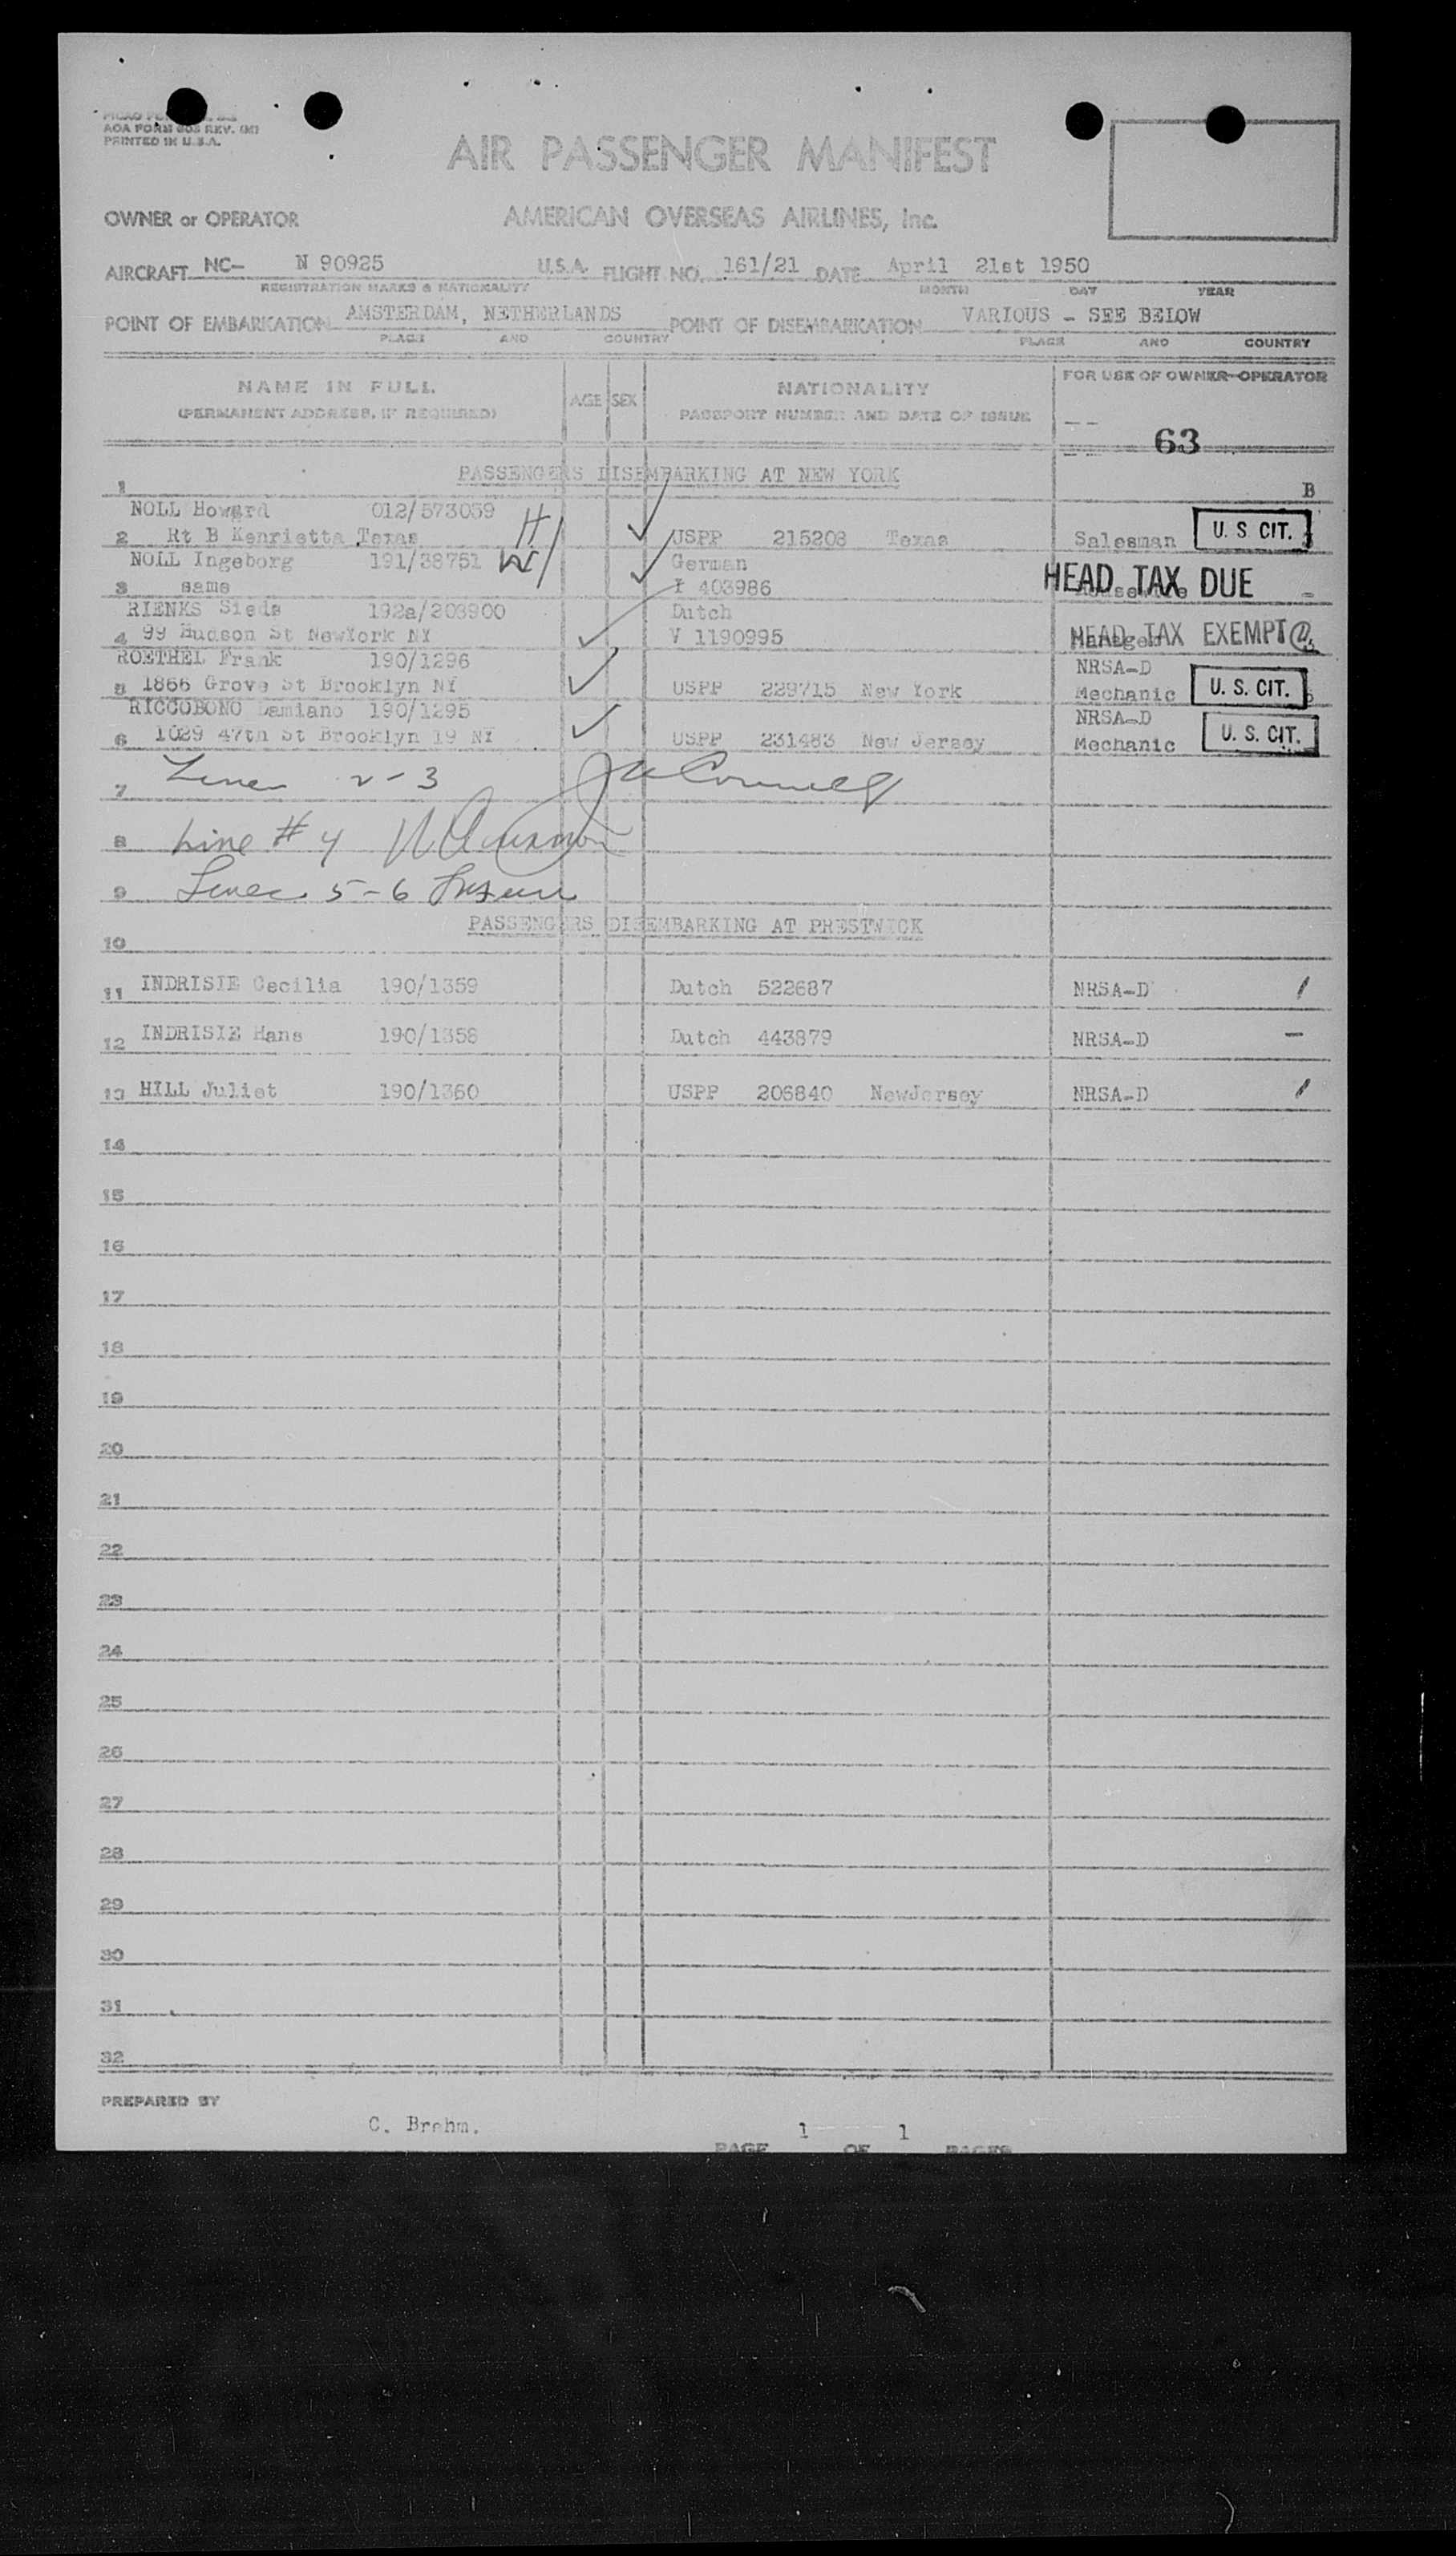 AOA FORM 603 REV. (M)
PRINTED IN U.S.A.
AIR PASSENGER MANIFEST
OWNER or OPERATOR AMERICAN OVERSEAS AIRLINES, Inc.
AIRCRAFT NC- N 90925 U.S.A. FLIGHT NO. 161/21 DATE April 21st 1950
REGISTRATION MARKS & NATIONALITY MONTH DAY YEAR
POINT OF EMBARKATION AMSTERDAM, NETHERLANDS POINT OF DISEMBARKATION VARIOUS - SEE BELOW
PLACE AND COUNTRY PLACE AND COUNTRY
NAME IN FULL AGE SEX NATIONALITY FOR USE OF OWNER-OPERATOR
(PERMANENT ADDRESS, IF REQUIRED) PASSPORT NUMBER AND DATE OF ISSUE
63
PASSENGERS DISEMBARKING AT NEW YORK
1 B
NOLL Howard 012/573059 H
2 Rt B Henrietta Texas USPP 215208 Texas Salesman U. S. CIT.
NOLL Ingeborg 191/38751 W German
3 same I 403986 HEAD TAX DUE -
RIENKS Sieds 192a/203900 Dutch
4 99 Hudson St NewYork NY V 1190995 Manager HEAD TAX EXEMPT
ROETHEL Frank 190/1296 NRSA-D
5 1866 Grove St Brooklyn NY USPP 229715 New York Mechanic U. S. CIT.
RICCOBONO Damiano 190/1295 NRSA-D
6 1029 47th St Brooklyn 19 NY USPP 231483 New Jersey Mechanic U. S. CIT.
7 Lines 2-3
8 Line # 4
9 Lines 5-6
PASSENGERS DISEMBARKING AT PRESTWICK
10
11 INDRISIE Cecilia 190/1359 Dutch 522687 NRSA-D /
12 INDRISIE Hans 190/1358 Dutch 443879 NRSA-D -
13 HILL Juliet 190/1360 USPP 206840 NewJersey NRSA-D /
14
15
16
17
18
19
20
21
22
23
24
25
26
27
28
29
30
31
32
PREPARED BY
C. Brehm.
PAGE 1 OF 1 PAGES